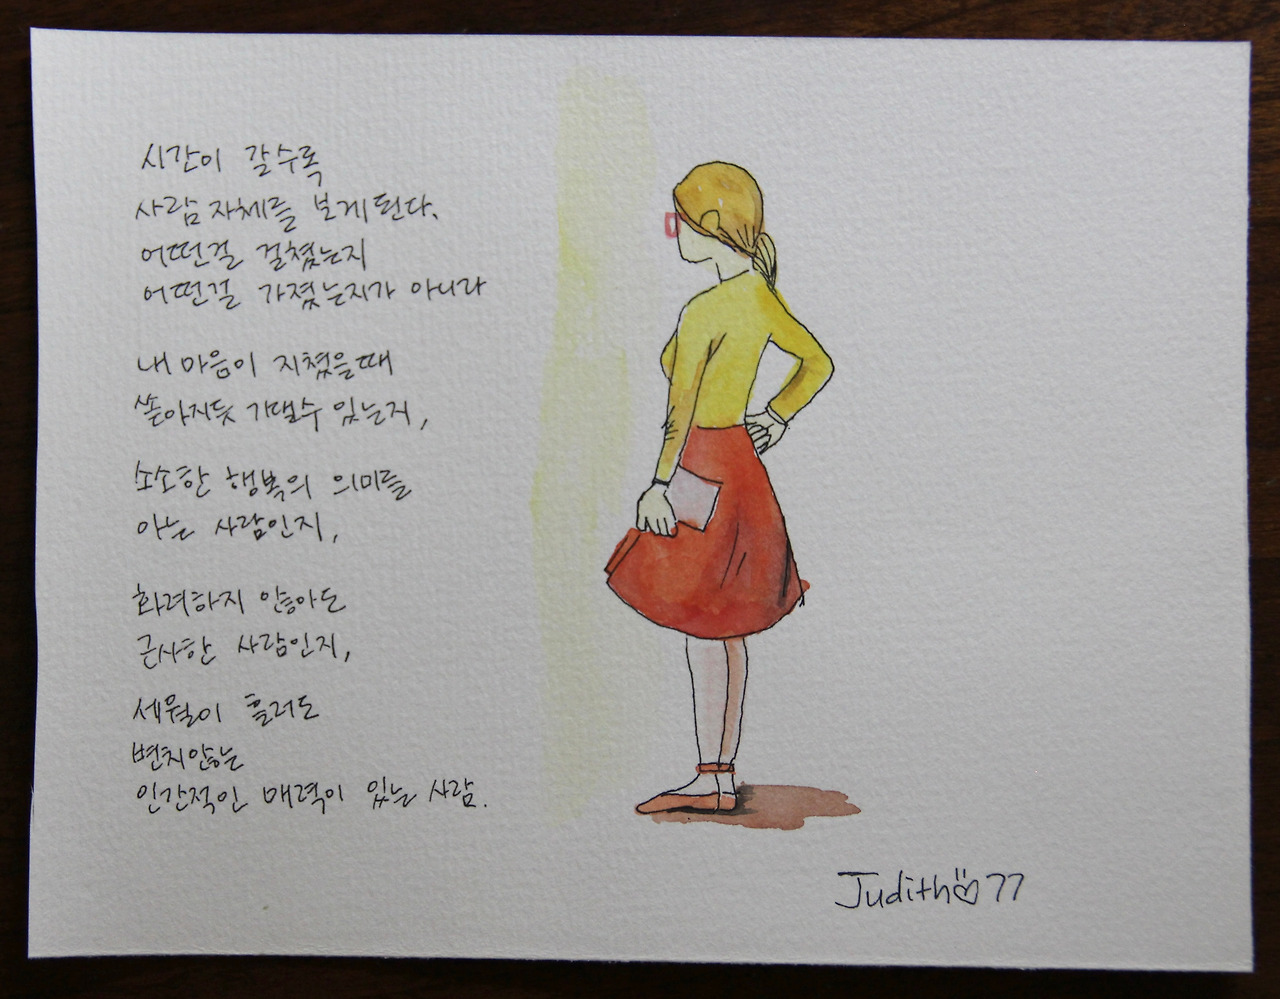 시간이 갈수록
사람 자체를 보게된다.
어떤걸 걸쳤는지
어떤걸 가졌는지가 아니라
내 마음이 지쳤을때
쏟아지듯 기댈수 있는지,
소소한 행복의 의미를
아는 사람인지,
화려하지 않아도
근사한 사람인지,
세월이 흘러도
변치않는
인간적인 매력이 있는 사람.
Judith 77